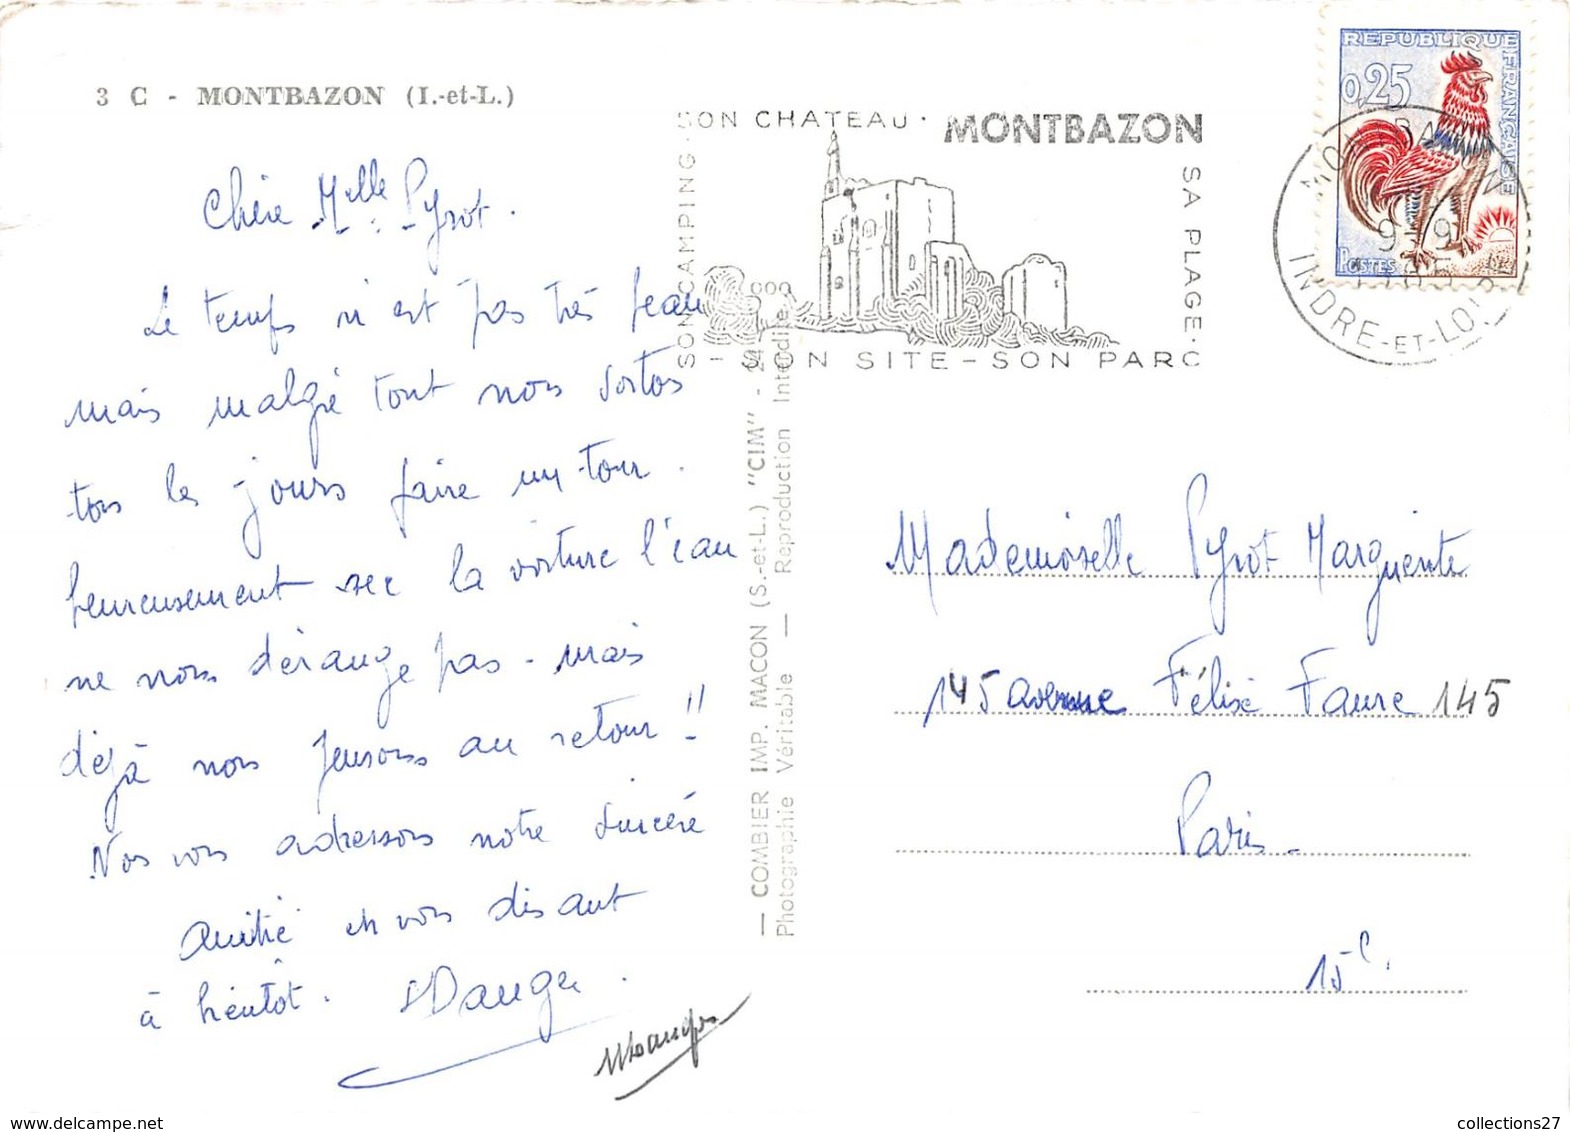 3 C - MONTBAZON (I.-et-L.)
Chère Mlle Pyrot.
Le temps n'est pas très beau
mais malgré tout nous sortos
tous les jours faire un tour.
heureusement avec la voiture l'eau
ne nous dérange pas - mais
déjà nous pensons au retour !!
Nos vous adressons notre sincère
amitié en vous disant
à bientôt. Dauger.
— COMBIER IMP. MACON (S.-et-L.) "CIM" -
Photographie Véritable — Reproduction Interdite
SON CAMPING · SON CHATEAU · MONTBAZON
SA PLAGE ·
- SON SITE - SON PARC
REPUBLIQUE FRANÇAISE
0,25
POSTES
MONTBAZON
INDRE-ET-LOIRE
Mademoiselle Pyrot Marguerite
145 avenue Félix Faure 145
Paris -
15e.
collections27